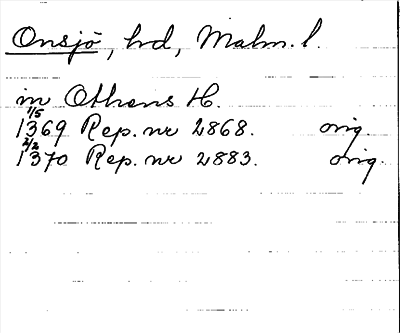 Onsjö, hd, Malm. l.
in Othens H.
1/5
1369 Rep. nr 2868. orig.
2/2
1370 Rep. nr 2883. orig.